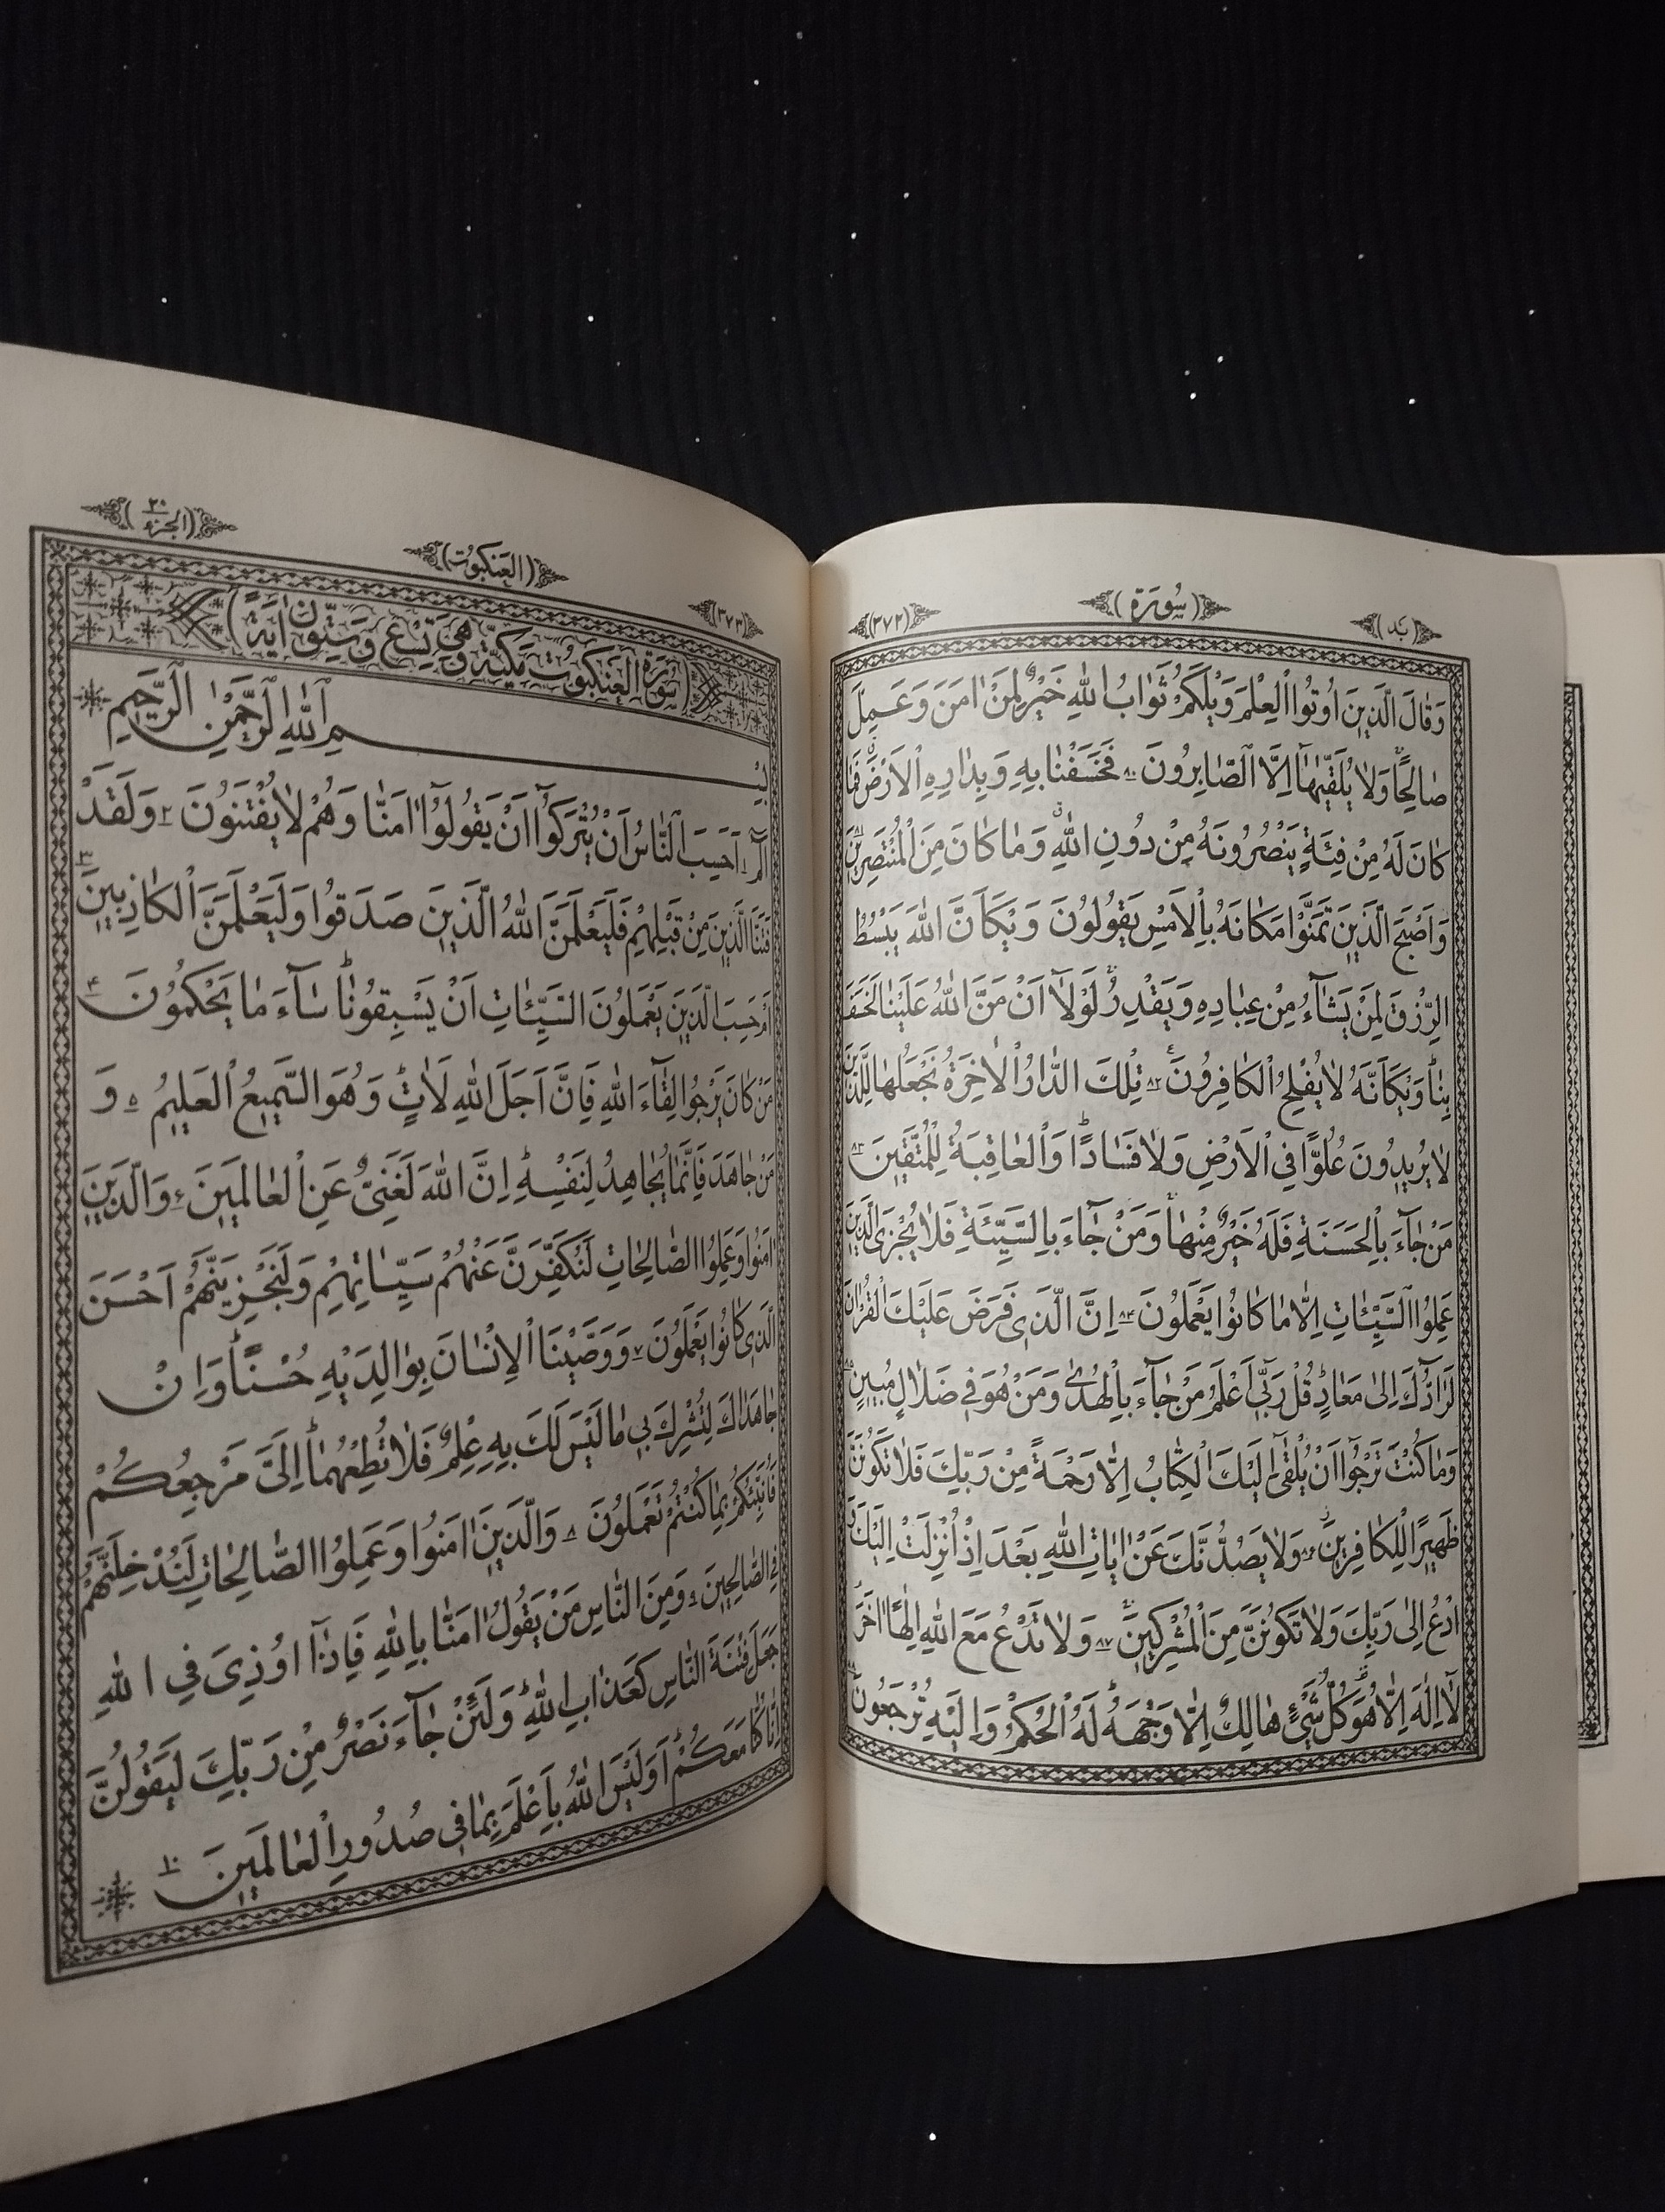 (بد) (سُورَة) (٣٧٢)
وَقَالَ الَّذِينَ اُوتُوا الْعِلْمَ وَيْلَكُمْ ثَوَابُ اللّٰهِ خَيْرٌ لِمَنْ اٰمَنَ وَعَمِلَ
صَالِحًا وَلَا يُلَقّٰيهَٓا اِلَّا الصَّابِرُونَ ٨٠ فَخَسَفْنَا بِهِ وَبِدَارِهِ الْاَرْضَ فَمَا
كَانَ لَهُ مِنْ فِئَةٍ يَنْصُرُونَهُ مِنْ دُونِ اللّٰهِ وَمَا كَانَ مِنَ الْمُنْتَصِرِينَ ٨١
وَاَصْبَحَ الَّذِينَ تَمَنَّوْا مَكَانَهُ بِالْاَمْسِ يَقُولُونَ وَيْكَاَنَّ اللّٰهَ يَبْسُطُ
الرِّزْقَ لِمَنْ يَشَٓاءُ مِنْ عِبَادِهِ وَيَقْدِرُ لَوْلَٓا اَنْ مَنَّ اللّٰهُ عَلَيْنَا لَخَسَفَ
بِنَا وَيْكَاَنَّهُ لَا يُفْلِحُ الْكَافِرُونَ ٨٢ تِلْكَ الدَّارُ الْاٰخِرَةُ نَجْعَلُهَا لِلَّذِينَ
لَا يُرِيدُونَ عُلُوًّا فِي الْاَرْضِ وَلَا فَسَادًا وَالْعَاقِبَةُ لِلْمُتَّقِينَ ٨٣
مَنْ جَٓاءَ بِالْحَسَنَةِ فَلَهُ خَيْرٌ مِنْهَا وَمَنْ جَٓاءَ بِالسَّيِّئَةِ فَلَا يُجْزَى الَّذِينَ
عَمِلُوا السَّيِّئَاتِ اِلَّا مَا كَانُوا يَعْمَلُونَ ٨٤ اِنَّ الَّذِي فَرَضَ عَلَيْكَ الْقُرْاٰنَ
لَرَٓادُّكَ اِلٰى مَعَادٍ قُلْ رَبِّٓي اَعْلَمُ مَنْ جَٓاءَ بِالْهُدٰى وَمَنْ هُوَ فِي ضَلَالٍ مُبِينٍ ٨٥
وَمَا كُنْتَ تَرْجُٓوا اَنْ يُلْقٰٓى اِلَيْكَ الْكِتَابُ اِلَّا رَحْمَةً مِنْ رَبِّكَ فَلَا تَكُونَنَّ
ظَهِيرًا لِلْكَافِرِينَ ٨٦ وَلَا يَصُدُّنَّكَ عَنْ اٰيَاتِ اللّٰهِ بَعْدَ اِذْ اُنْزِلَتْ اِلَيْكَ وَ
ادْعُ اِلٰى رَبِّكَ وَلَا تَكُونَنَّ مِنَ الْمُشْرِكِينَ ٨٧ وَلَا تَدْعُ مَعَ اللّٰهِ اِلٰهًا اٰخَرَ
لَٓا اِلٰهَ اِلَّا هُوَ كُلُّ شَيْءٍ هَالِكٌ اِلَّا وَجْهَهُ لَهُ الْحُكْمُ وَاِلَيْهِ تُرْجَعُونَ ٨٨
(٣٧٣) (العَنكبُوت) (الجزء ٢٠)
(سُورَةُ الْعَنكَبُوتِ مَكِّيَّة وَهِيَ تِسْعٌ وَسِتُّونَ اٰيَةً)
بِسْمِ اللّٰهِ الرَّحْمٰنِ الرَّحِيمِ
الٓمٓ ١ اَحَسِبَ النَّاسُ اَنْ يُتْرَكُٓوا اَنْ يَقُولُٓوا اٰمَنَّا وَهُمْ لَا يُفْتَنُونَ ٢ وَلَقَدْ
فَتَنَّا الَّذِينَ مِنْ قَبْلِهِمْ فَلَيَعْلَمَنَّ اللّٰهُ الَّذِينَ صَدَقُوا وَلَيَعْلَمَنَّ الْكَاذِبِينَ ٣
اَمْ حَسِبَ الَّذِينَ يَعْمَلُونَ السَّيِّئَاتِ اَنْ يَسْبِقُونَا سَٓاءَ مَا يَحْكُمُونَ ٤
مَنْ كَانَ يَرْجُوا لِقَٓاءَ اللّٰهِ فَاِنَّ اَجَلَ اللّٰهِ لَاٰتٍ وَهُوَ السَّمِيعُ الْعَلِيمُ ٥ وَ
مَنْ جَاهَدَ فَاِنَّمَا يُجَاهِدُ لِنَفْسِهِ اِنَّ اللّٰهَ لَغَنِيٌّ عَنِ الْعَالَمِينَ ٦ وَالَّذِينَ
اٰمَنُوا وَعَمِلُوا الصَّالِحَاتِ لَنُكَفِّرَنَّ عَنْهُمْ سَيِّـَٔاتِهِمْ وَلَنَجْزِيَنَّهُمْ اَحْسَنَ
الَّذِي كَانُوا يَعْمَلُونَ ٧ وَوَصَّيْنَا الْاِنْسَانَ بِوَالِدَيْهِ حُسْنًا وَاِنْ
جَاهَدَاكَ لِتُشْرِكَ بِي مَا لَيْسَ لَكَ بِهِ عِلْمٌ فَلَا تُطِعْهُمَا اِلَيَّ مَرْجِعُكُمْ
فَاُنَبِّئُكُمْ بِمَا كُنْتُمْ تَعْمَلُونَ ٨ وَالَّذِينَ اٰمَنُوا وَعَمِلُوا الصَّالِحَاتِ لَنُدْخِلَنَّهُمْ
فِي الصَّالِحِينَ ٩ وَمِنَ النَّاسِ مَنْ يَقُولُ اٰمَنَّا بِاللّٰهِ فَاِذَٓا اُوذِيَ فِي اللّٰهِ
جَعَلَ فِتْنَةَ النَّاسِ كَعَذَابِ اللّٰهِ وَلَئِنْ جَٓاءَ نَصْرٌ مِنْ رَبِّكَ لَيَقُولُنَّ
اِنَّا كُنَّا مَعَكُمْ اَوَلَيْسَ اللّٰهُ بِاَعْلَمَ بِمَا فِي صُدُورِ الْعَالَمِينَ ١٠